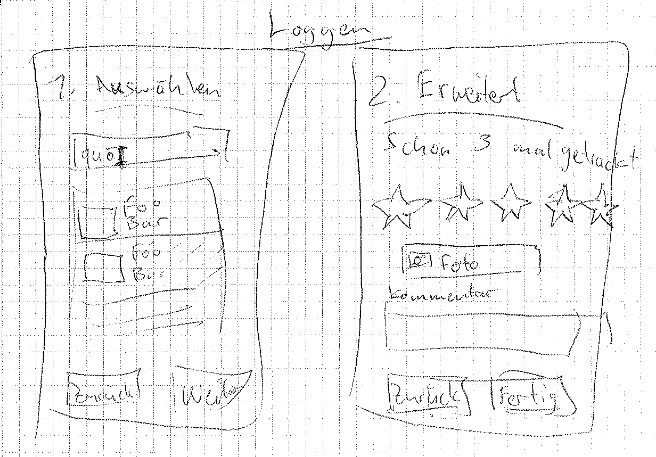 Loggen
1. Auswählen
quo
Foo
Bar
Foo
Bar
Zurück
Weiter
2. Erweitert
Schon 3 mal getrackt
Foto
Kommentar
Zurück
Fertig